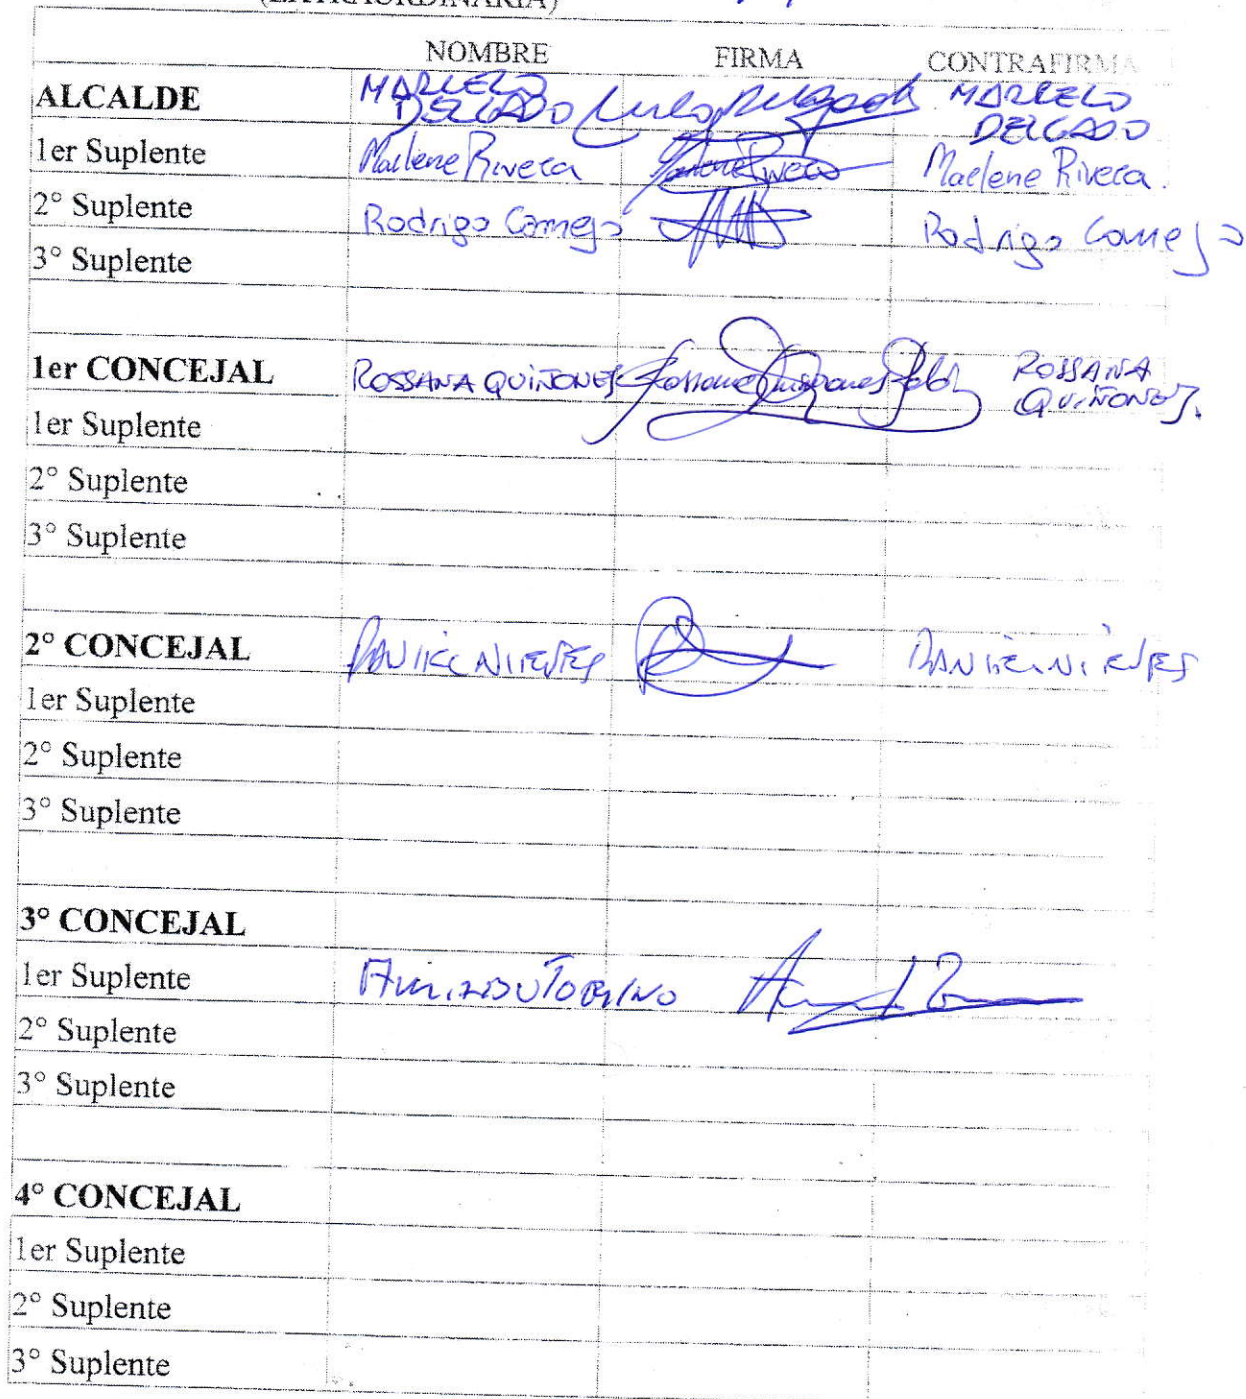 (EXTRAORDINARIA)
NOMBRE FIRMA CONTRAFIRMA
ALCALDE MARCELO DELGADO MARCELO DELGADO
1er Suplente Marlene Rivera Marlene Rivera.
2° Suplente Rodrigo Cornejo Rodrigo Cornejo
3° Suplente
1er CONCEJAL ROSSANA QUIÑONES ROSSANA QUIÑONES.
1er Suplente
2° Suplente
3° Suplente
2° CONCEJAL DANIEL NIEVES DANIEL NIEVES
1er Suplente
2° Suplente
3° Suplente
3° CONCEJAL
1er Suplente
2° Suplente
3° Suplente
4° CONCEJAL
1er Suplente
2° Suplente
3° Suplente